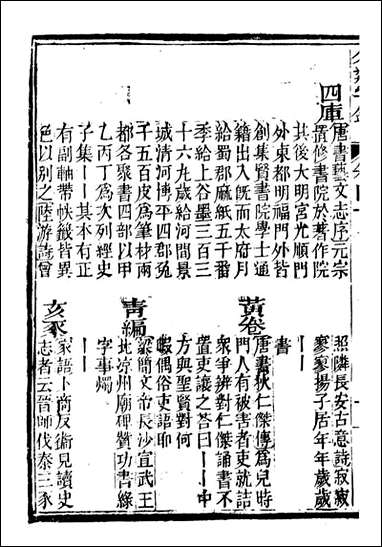 四庫
唐書藝文志序元宗
置修書院於著作院
其後大明宮光順門
外東都明福門外皆
創集賢書院學士通
籍出入既而太府月
給蜀郡麻紙五千番
季給上谷墨三百三
十六凡歲給河間景
城清河博平四郡兔
千五百皮為筆材兩
都各聚書四部以甲
乙丙丁為次列經史
子集丨丨其本有正
有副軸帶帙籤皆異
色以別之陸游詩曾
照隣長安古意詩寂寂
寥寥揚子居年年歲歲
丨丨
書
黃卷
唐書狄仁傑傳為兒時
門人有被害者吏就詰
衆爭辨對仁傑誦書不
置吏讓之荅曰丨丨中
方與聖賢對何
暇偶俗吏語耶
青編
梁簡文帝長沙宣武王
北涼州廟碑贊功書綠
字事燭
丨丨
亥豕
家語卜商反衛見讀史
志者云晉師伐秦三豕